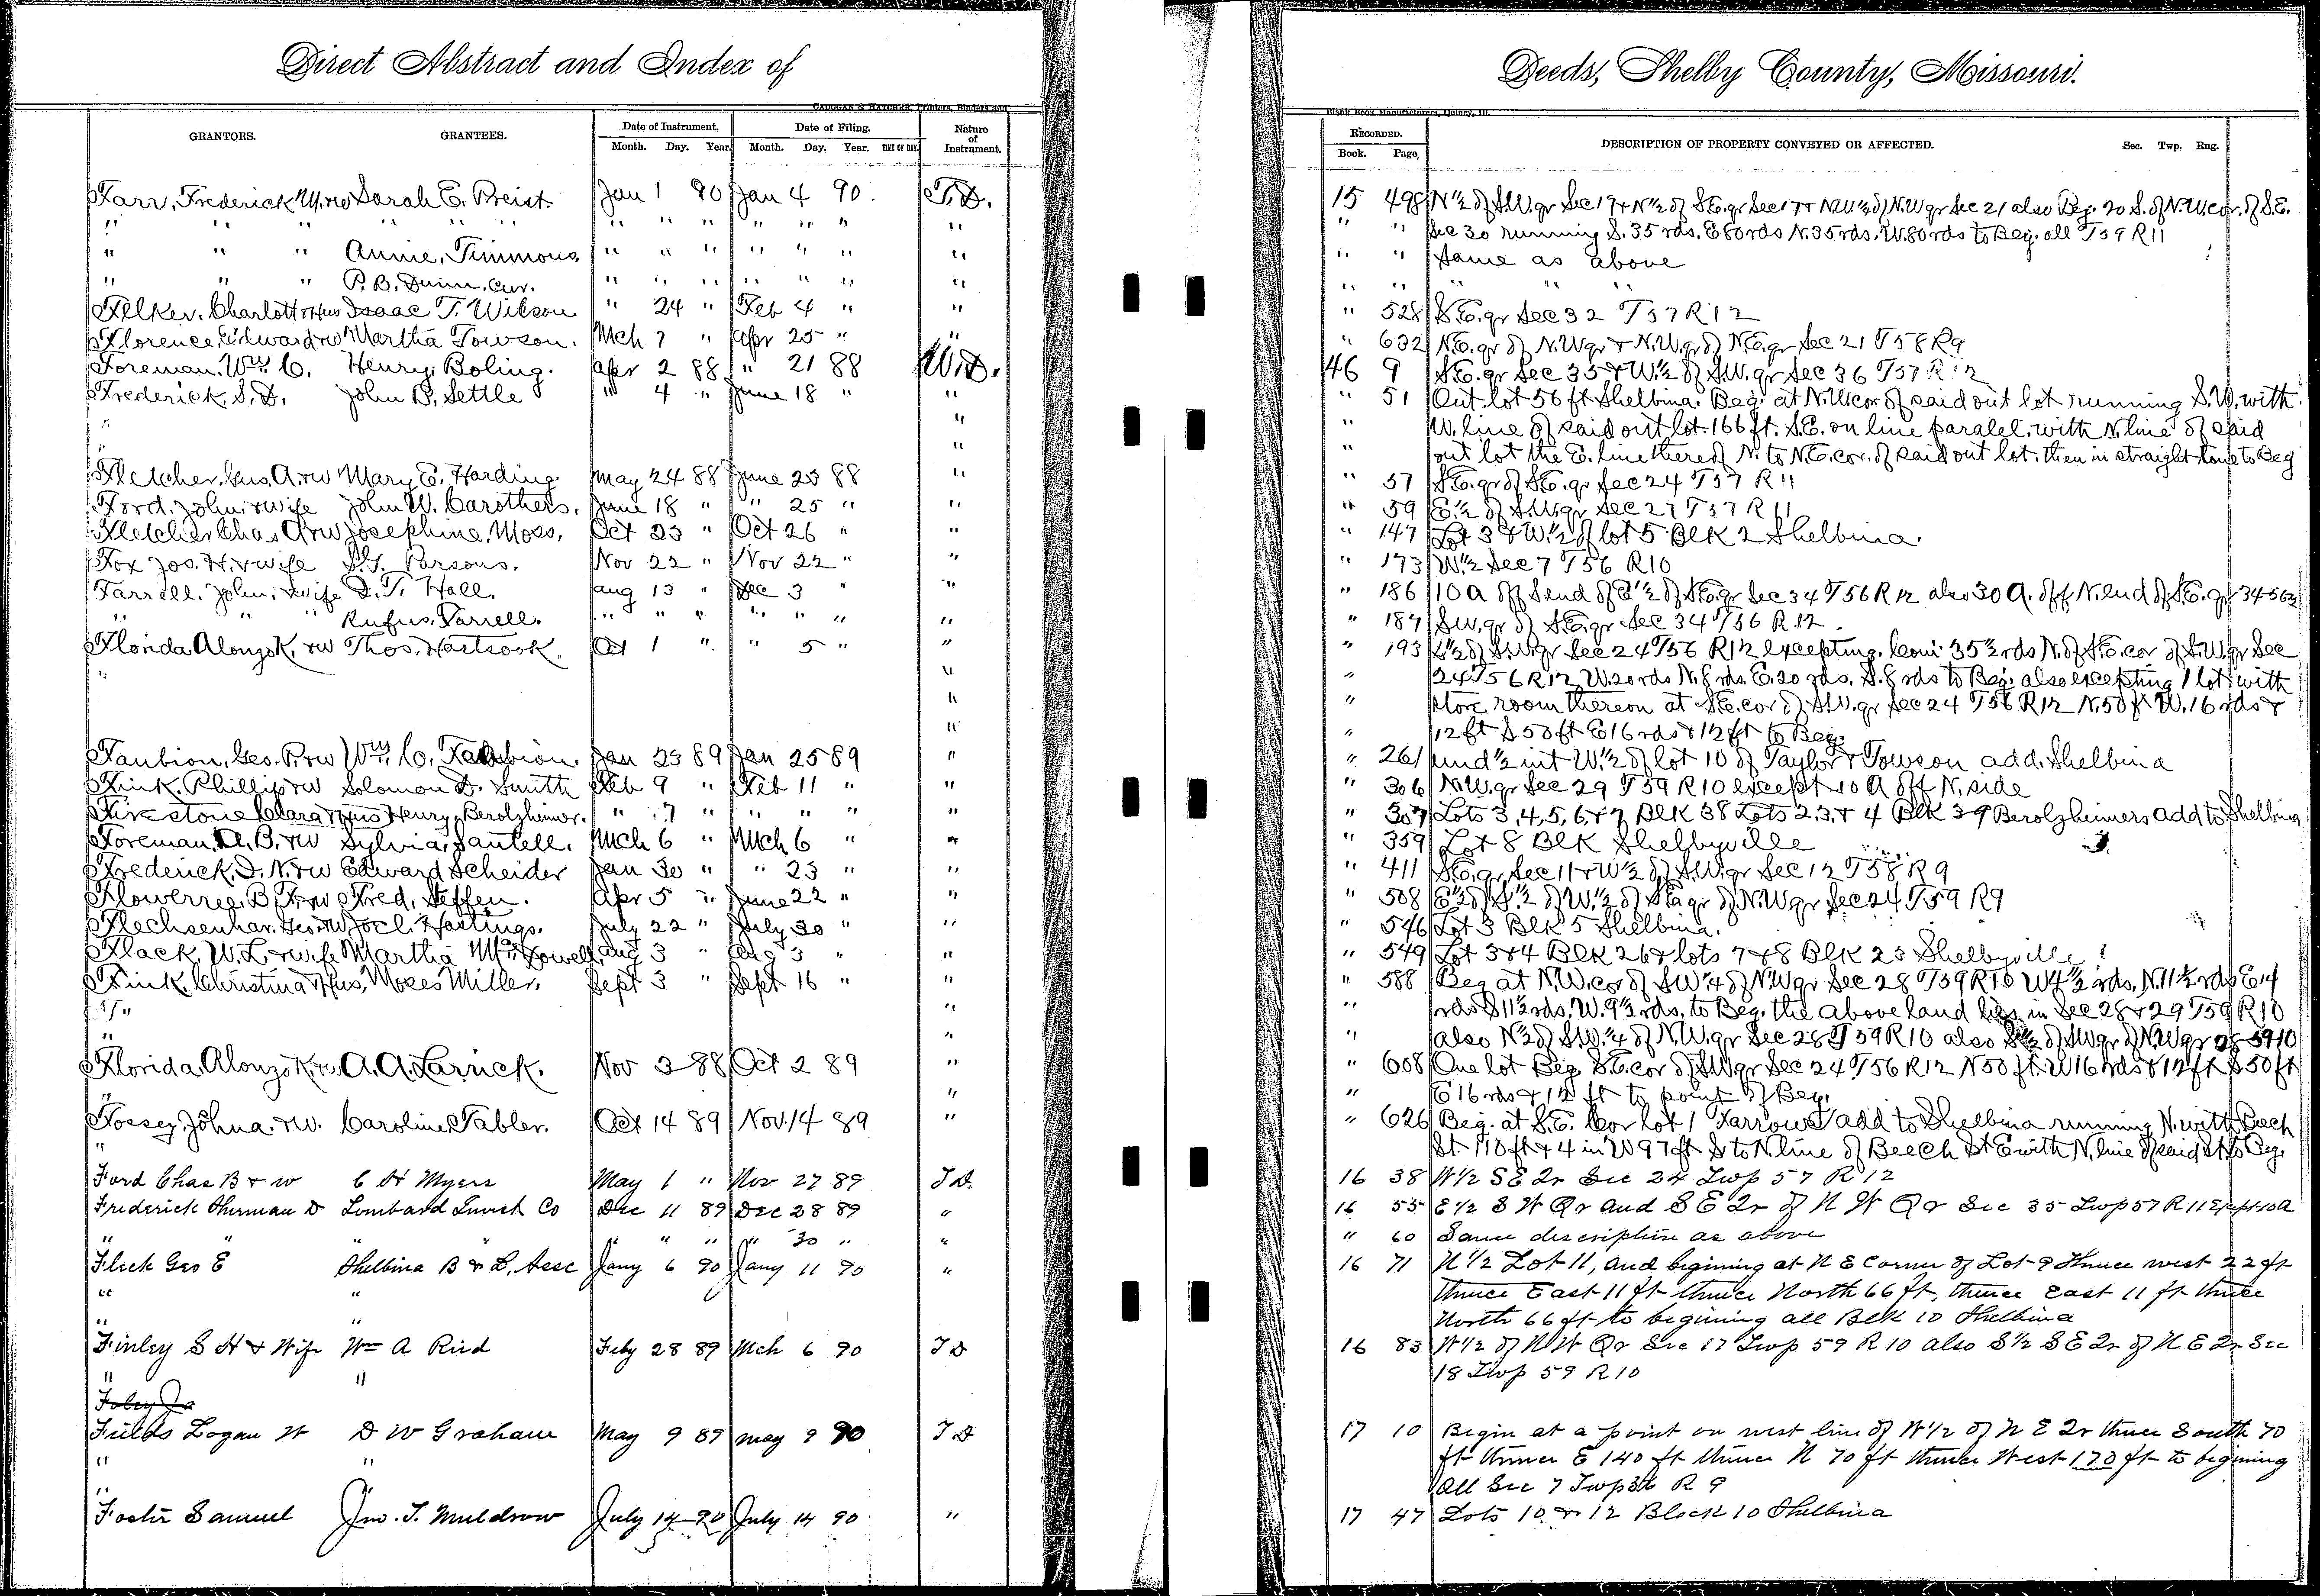 Direct Abstract and Index of
Deeds, Shelby County, Missouri.
CADOGAN & HATCHER, Printers, Binders and
Blank Book Manufacturers, Quincy, Ill.
GRANTORS. GRANTEES. Date of Instrument. Month. Day. Year. Date of Filing. Month. Day. Year. TIME OF DAY. Nature of Instrument. RECORDED. Book. Page. DESCRIPTION OF PROPERTY CONVEYED OR AFFECTED. Sec. Twp. Rng.
Farr, Frederick M. & w Sarah E. Preist. Jan 1 90 Jan 4 90. T.D. 15 498 N ½ of S.W. qr Sec 19 & N ½ of S.E. qr Sec 17 & N.W ½ of N.W qr Sec 21 also Beg. 20 S. of N.W. cor. of S.E.
" " " " " " " " " " " " " " " Sec 30 running S. 35 rds. E 80 rds N. 35 rds. W. 80 rds to Beg. all T 59 R 11
" " " Annie Timmons " " " " " " " " " Same as above
" " " P. B. Dunn, Cur. " " " " " " " " " " "
Felker, Charlott & Hus Isaac T. Wilson " 24 " Feb 4 " " " 528 S.E. qr Sec 32 T 57 R 12
Florence, Edward & w Martha Towson. Mch 7 " Apr 25 " " 632 N.E. qr of N.W qr & N.W. qr of N.E. qr Sec 21 T 58 R 9
Foreman, Wm C. Henry Boling. Apr 2 88 " 21 88 W.D. 46 9 S.E. qr Sec 35 & W. ½ of S.W. qr Sec 36 T 57 R 12
Frederick, S. D. John B. Settle " 4 " June 18 " " " 51 Out lot 56 ft Shelbina. Beg. at N.W. cor of said out lot running S.W. with
" " " W. line of said out lot. 166 ft. S.E. on line paralel. with N line of said
" " out lot the E. line thereof N. to N.E. cor. of said out lot. then in straight line to Beg
Fletcher, Gus. A. & w Mary E. Harding. May 24 88 June 25 88 " " 57 S.E. qr of S.E. qr Sec 24 T 57 R 11
Ford, John & wife John W. Carothers. June 18 " " 25 " " " 59 E. ½ of S.W. qr Sec 27 T 57 R 11
Fletcher Chas A & w Josephine Moss. Oct 23 " Oct 26 " " " 147 Lot 3 & W. ½ of lot 5 Blk 2 Shelbina
Fox Jos. H. & wife S. J. Parsons. Nov 22 " Nov 22 " " " 173 W. ½ Sec 7 T 56 R 10
Farrell, John & wife D. T. Hall. Aug 13 " Dec 3 " " " 186 10 A off S end of E ½ of S.E. qr Sec 34 T 56 R 12 also 30 A. off N. end of S.E. qr 34-56-12
" " " Rufus Farrell. " " " " " " " " 187 S.W. qr of S.E. qr Sec 34 T 56 R 12.
Florida Alonzo K. & w Thos. Hartsook. Oct 1 " " 5 " " " 193 S ½ of S.W. qr Sec 24 T 56 R 12 excepting. Com: 35 ½ rds N. of S.E. cor of S.W. qr Sec
" " " 24 T 56 R 12 W. 20 rds N. 8 rds. E. 20 rds. S. 8 rds to Beg. also excepting 1 lot with
" " store room thereon at S.E. cor of S.W. qr Sec 24 T 56 R 12 N. 50 ft W. 16 rds &
" " 12 ft S 50 ft E 16 rds & 12 ft to Beg.
Faubion, Geo. P. & w Wm. C. Faubion. Jan 23 89 Jan 25 89 " " 261 und ½ int W. ½ of lot 10 of Taylor & Towson add. Shelbina
Fink, Phillip & w Solomon D. Smith Feb 9 " Feb 11 " " " 306 N.W. qr Sec 29 T 59 R 10 except 10 A off N. side
Firestone Clara & Hus Henry Berolzheimer. " 7 " " " " " " 307 Lots 3, 4, 5, 6, & 7 Blk 38 Lots 2, 3, & 4 Blk 39 Berolzheimers add to Shelbina
Foreman, A. B. & w Sylvia Santell. Mch 6 " Mch 6 " " " 359 Lot 8 Blk Shelbyville
Frederick, D. N. & w Edward Scheider Jan 30 " " 23 " " " 411 S.E. qr Sec 11 & W ½ of S.W. qr Sec 12 T 58 R 9
Flowerree, B. F. & w Fred. Steffen. Apr 5 " June 22 " " " 508 E ½ of S. ½ of W. ½ of S.E. qr of N.W qr Sec 24 T 59 R 9
Flechsenhar, Geo & w Joel Hastings. July 22 " July 30 " " " 546 Lot 3 Blk 5 Shelbina.
Flack, W. L. & wife Martha McDowell Aug 3 " Aug 3 " " " 549 Lot 3 & 4 Blk 26 & lots 7 & 8 Blk 23 Shelbyville
Fink, Christina & Hus. Moses Miller. Sept 3 " Sept 16 " " " 588 Beg at N.W. cor of S.W ¼ of N.W qr Sec 28 T 59 R 10 W 4 ½ rds. N. 11 ½ rds E 14
" " " rds S 11 ½ rds. W. 9 ½ rds. to Beg. the above land lies in Sec 28 & 29 T 59 R 10
" " " also N ½ of S.W. ¼ of N.W. qr Sec 28 T 59 R 10 also S ½ of S.W qr of N.W qr 28-59-10
Florida Alonzo K. & w. A. A. Larrick. Nov 3 88 Oct 2 89 " " 608 One lot Beg. S.E. cor of S.W qr Sec 24 T 56 R 12 N 50 ft. W 16 rds & 12 ft S 50 ft
" " " E 16 rds & 12 ft to point of Beg.
Fossey, John a. & w. Caroline Tabler. Oct 14 89 Nov. 14 89 " " 626 Beg. at S.E. Cor Lot 1 Farrows add to Shelbina running N. with Beech
" St. 110 ft & 4 in W 97 ft S to N line of Beech St E with N. line of said St to Beg.
Ford Chas B & w C H Myers May 1 " Nov 27 89 T D. 16 38 W ½ S E Qr Sec 24 Twp 57 R 12
Frederick Sherman D Lombard Invest Co Dec 11 89 Dec 28 89 " 16 55 E ½ S W Qr and S E Qr of N W Qr Sec 35 Twp 57 R 11 Except 10 A
" " " " " " " 30 " " " 60 Same description as above
Fleck Geo E Shelbina B & L. Assc Jany 6 90 Jany 11 90 " 16 71 N ½ Lot 11, and begining at N E Corner of Lot 9 thence west 22 ft
" " thence East 11 ft thence North 66 ft, thence East 11 ft thence
" " North 66 ft to begining all Blk 10 Shelbina
Finley S H & Wife Wm A Rird Feby 28 89 Mch 6 90 T D 16 83 W ½ of N W Qr Sec 17 Twp 59 R 10 also S ½ S E Qr of N E Qr Sec
" " 18 Twp 59 R 10
Foley Ja
Fields Logan W D W Graham May 9 89 May 9 90 T D 17 10 Begin at a point on west line of W ½ of N E Qr thence South 70
" " ft thence E 140 ft thence N 70 ft thence West 170 ft to begining
" All Sec 7 Twp 56 R 9
Foster Samuel Jno. T. Muldrow July 14 90 July 14 90 " 17 47 Lots 10 & 12 Block 10 Shelbina